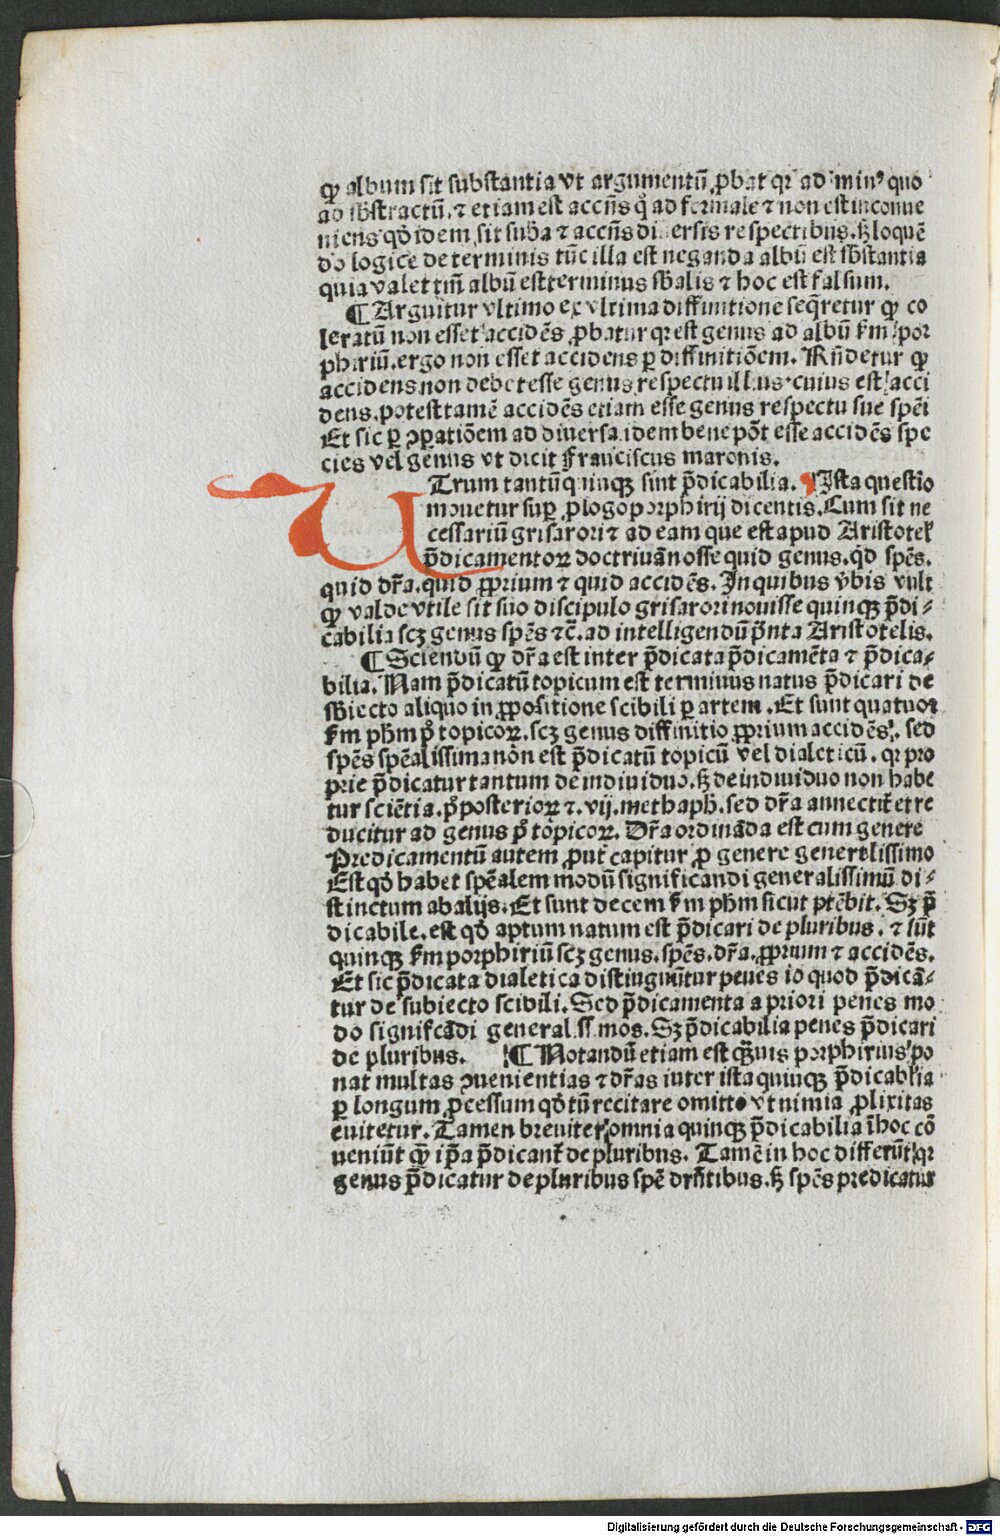 ꝙ album sit substantia vt argumentū ꝓbat qꝛ ad minꝰ quo
ad sb̄stractū. ⁊ etiam est accn̄s q̄ ad formale ⁊ non est inconue
niens qđ idem sit sub̄a ⁊ accn̄s diuersis respectibus. Sꝫ loquē
do logice de terminis tūc illa est neganda albū est sb̄stantia
quia valet tm̄ albū est terminus sb̄alis ⁊ hoc est falsum.
¶ Arguitur vltimo ex vltima diffinitione seq̄retur ꝙ co
leratū non esset accidēs ꝓbatur qꝛ est genus ad albū km̄ por
phiriū. ergo non esset accidens ꝑ diffinitiōem. Rn̄detur ꝙ
accidens non debet esse genus respectu illius cuius est acci
dens. potest tamē accidēs etiam esse genus respectu sue spēi
Et sic ꝑ ꝯꝑatiōem ad diuersa idem bene pōt esse accidēs spe
cies vel genus vt dicit Franciscus maronis.
UTrum tantū quinqꝫ sint p̄dicabilia. Ista questio
mouetur suꝑ ꝓlogo porphirij dicentis. Cum sit ne
cessariū grisarori ⁊ ad eam que est apud Aristotel̄
p̄dicamentoꝝ doctrinā nosse quid genus. qđ spēs.
quid dr̄a. quid ꝓprium ⁊ quid accidēs. In quibus v̄bis vult
ꝙ valde vtile sit suo discipulo grisarori nouisse quinqꝫ p̄di⸗
cabilia scꝫ genus spēs ⁊c̄. ad intelligendū p̄nta Aristotelis.
¶ Sciendū ꝙ dr̄a est inter p̄dicata p̄dicamēta ⁊ p̄dica⸗
bilia. Nam p̄dicatū topicum est terminus natus p̄dicari de
sb̄iecto aliquo in ꝓpositione scibili ꝑ artem. Et sunt quatuor
km̄ ph̄m pͦ topicoꝝ. scꝫ genus diffinitio ꝓprium accidēs. sed
spēs spēalissima nōn est p̄dicatū topicū vel dialeticū. qꝛ pro
prie p̄dicatur tantum de indiuiduo. Sꝫ de indiuiduo non habe
tur sciētia. pͦ posterioꝝ ⁊. vij. methaph̄. sed dr̄a annectit̄ et re
ducitur ad genus pͦ topicoꝝ. Dr̄a ordināda est cum genere
Predicamentū autem ꝓut capitur ꝓ genere generelissimo
Est qđ habet spēalem modū significandi generalissimū di⸗
stinctum ab alijs. Et sunt decem km̄ ph̄m sicut ptēbit. Sꝫ p̄
dicabile. est qđ aptum natum est p̄dicari de pluribus. ⁊ sūt
quinqꝫ km̄ porphiriū scꝫ genus. spēs. dr̄a. ꝓprium ⁊ accidēs.
Et sic p̄dicata dialetica distinguūtur penes io quod p̄dicā⸗
tur de subiecto scibili. Sed p̄dicamenta a priori penes mo
do significādi generalissimos. Sꝫ p̄dicabilia penes p̄dicari
de pluribus. ¶ Notandū etiam est qꝙuis porphirius po
nat multas ꝯuenientias ⁊ dr̄as inter ista quinqꝫ p̄dicabilia
ꝑ longum ꝓcessum qđ tū recitare omitto vt nimia ꝓlixitas
euitetur. Tamen breuiter omnia quinqꝫ p̄dicabilia ī hoc cō
ueniūt ꝙ ip̄a p̄dicant̄ de pluribus. Tamē in hoc differūt qꝛ
genus p̄dicatur de pluribus spē drn̄tibus. Sꝫ spēs predicatur
Digitalisierung gefördert durch die Deutsche Forschungsgemeinschaft - DFG